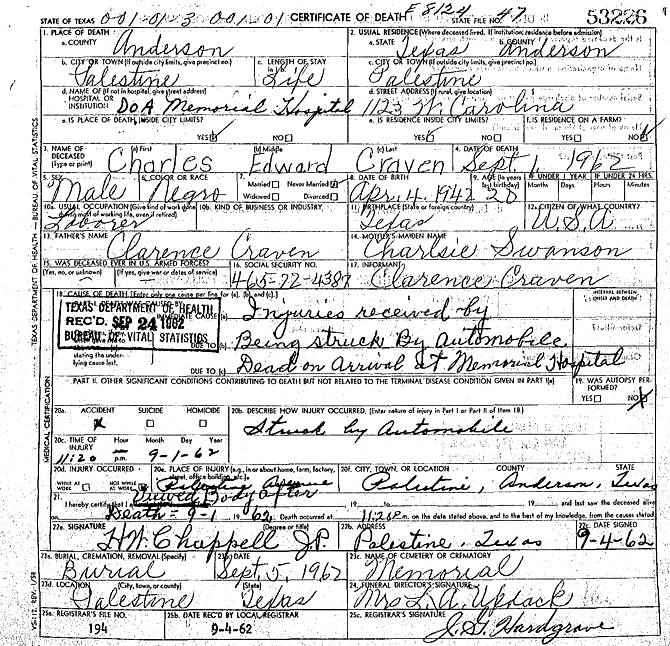 STATE OF TEXAS 001-01-3 001-01 CERTIFICATE OF DEATH STATE FILE NO. 53226
1. PLACE OF DEATH
a. COUNTY Anderson
2. USUAL RESIDENCE (Where deceased lived. If institution: residence before admission)
a. STATE Texas b. COUNTY Anderson
b. CITY OR TOWN (If outside city limits, give precinct no.) Palestine
c. LENGTH OF STAY Life
c. CITY OR TOWN (If outside city limits, give precinct no.) Palestine
d. NAME OF (If not in hospital, give street address) HOSPITAL OR INSTITUTION DOA Memorial Hospital
d. STREET ADDRESS (If rural, give location) 1123 W. Carolina
e. IS PLACE OF DEATH INSIDE CITY LIMITS? YES NO
e. IS RESIDENCE INSIDE CITY LIMITS? YES NO
f. IS RESIDENCE ON A FARM? YES NO
3. NAME OF DECEASED (Type or print) (a) First Charles (b) Middle Edward (c) Last Craven
4. DATE OF DEATH Sept 1, 1962
5. SEX Male
6. COLOR OR RACE Negro
7. Married Never Married Widowed Divorced
8. DATE OF BIRTH Apr. 4, 1942
9. AGE (In years last birthday) 20
IF UNDER 1 YEAR Months Days
IF UNDER 24 HRS. Hours Minutes
10a. USUAL OCCUPATION (Give kind of work done during most of working life, even if retired) Laborer
10b. KIND OF BUSINESS OR INDUSTRY
11. BIRTHPLACE (State or foreign country) Texas
12. CITIZEN OF WHAT COUNTRY? U.S.A
13. FATHER'S NAME Clarence Craven
14. MOTHER'S MAIDEN NAME Charlsie Swanson
15. WAS DECEASED EVER IN U.S. ARMED FORCES? (Yes, no, or unknown) (If yes, give war or dates of service)
16. SOCIAL SECURITY NO. 465-72-4387
17. INFORMANT Clarence Craven
18. CAUSE OF DEATH [Enter only one cause per line for (a), (b), and (c).]
INTERVAL BETWEEN ONSET AND DEATH
TEXAS DEPARTMENT OF HEALTH
REC'D. SEP 24 1962
BUREAU OF VITAL STATISTICS
IMMEDIATE CAUSE (a) Injuries received by
DUE TO (b) Being struck By Automobile
stating the underlying cause last.
DUE TO (c) Dead on Arrival at Memorial Hospital
PART II. OTHER SIGNIFICANT CONDITIONS CONTRIBUTING TO DEATH BUT NOT RELATED TO THE TERMINAL DISEASE CONDITION GIVEN IN PART I(a)
19. WAS AUTOPSY PERFORMED? YES NO X
20a. ACCIDENT X SUICIDE HOMICIDE
20b. DESCRIBE HOW INJURY OCCURRED. (Enter nature of injury in Part I or Part II of Item 18.)
Struck by Automobile
20c. TIME OF INJURY Hour Month Day Year
11:20 p.m. 9-1-62
20d. INJURY OCCURRED WHILE AT WORK NOT WHILE AT WORK
20e. PLACE OF INJURY (e.g., in or about home, farm, factory, street, office building, etc.) Avenue
20f. CITY, TOWN, OR LOCATION COUNTY STATE
Palestine, Anderson, Texas
21. I hereby certify that I Viewed Body after 19 to 19 and last saw the deceased alive
Death = 9-1 1962 Death occurred at 11:20 P.m. on the date stated above, and to the best of my knowledge, from the causes stated.
22a. SIGNATURE (Degree or title) H.W. Chappell J.P.
22b. ADDRESS Palestine, Texas
22c. DATE SIGNED 9-4-62
23a. BURIAL, CREMATION, REMOVAL (Specify) Burial
23b. DATE Sept. 5, 1962
23c. NAME OF CEMETERY OR CREMATORY Memorial
23d. LOCATION (City, town, or county) (State) Palestine Texas
24. FUNERAL DIRECTOR'S SIGNATURE Mrs L. A. Updack
25a. REGISTRAR'S FILE NO. 194
25b. DATE REC'D BY LOCAL REGISTRAR 9-4-62
25c. REGISTRAR'S SIGNATURE J. G. Hardgrove
TEXAS DEPARTMENT OF HEALTH — BUREAU OF VITAL STATISTICS
MEDICAL CERTIFICATION
VS-112, REV. 1/58